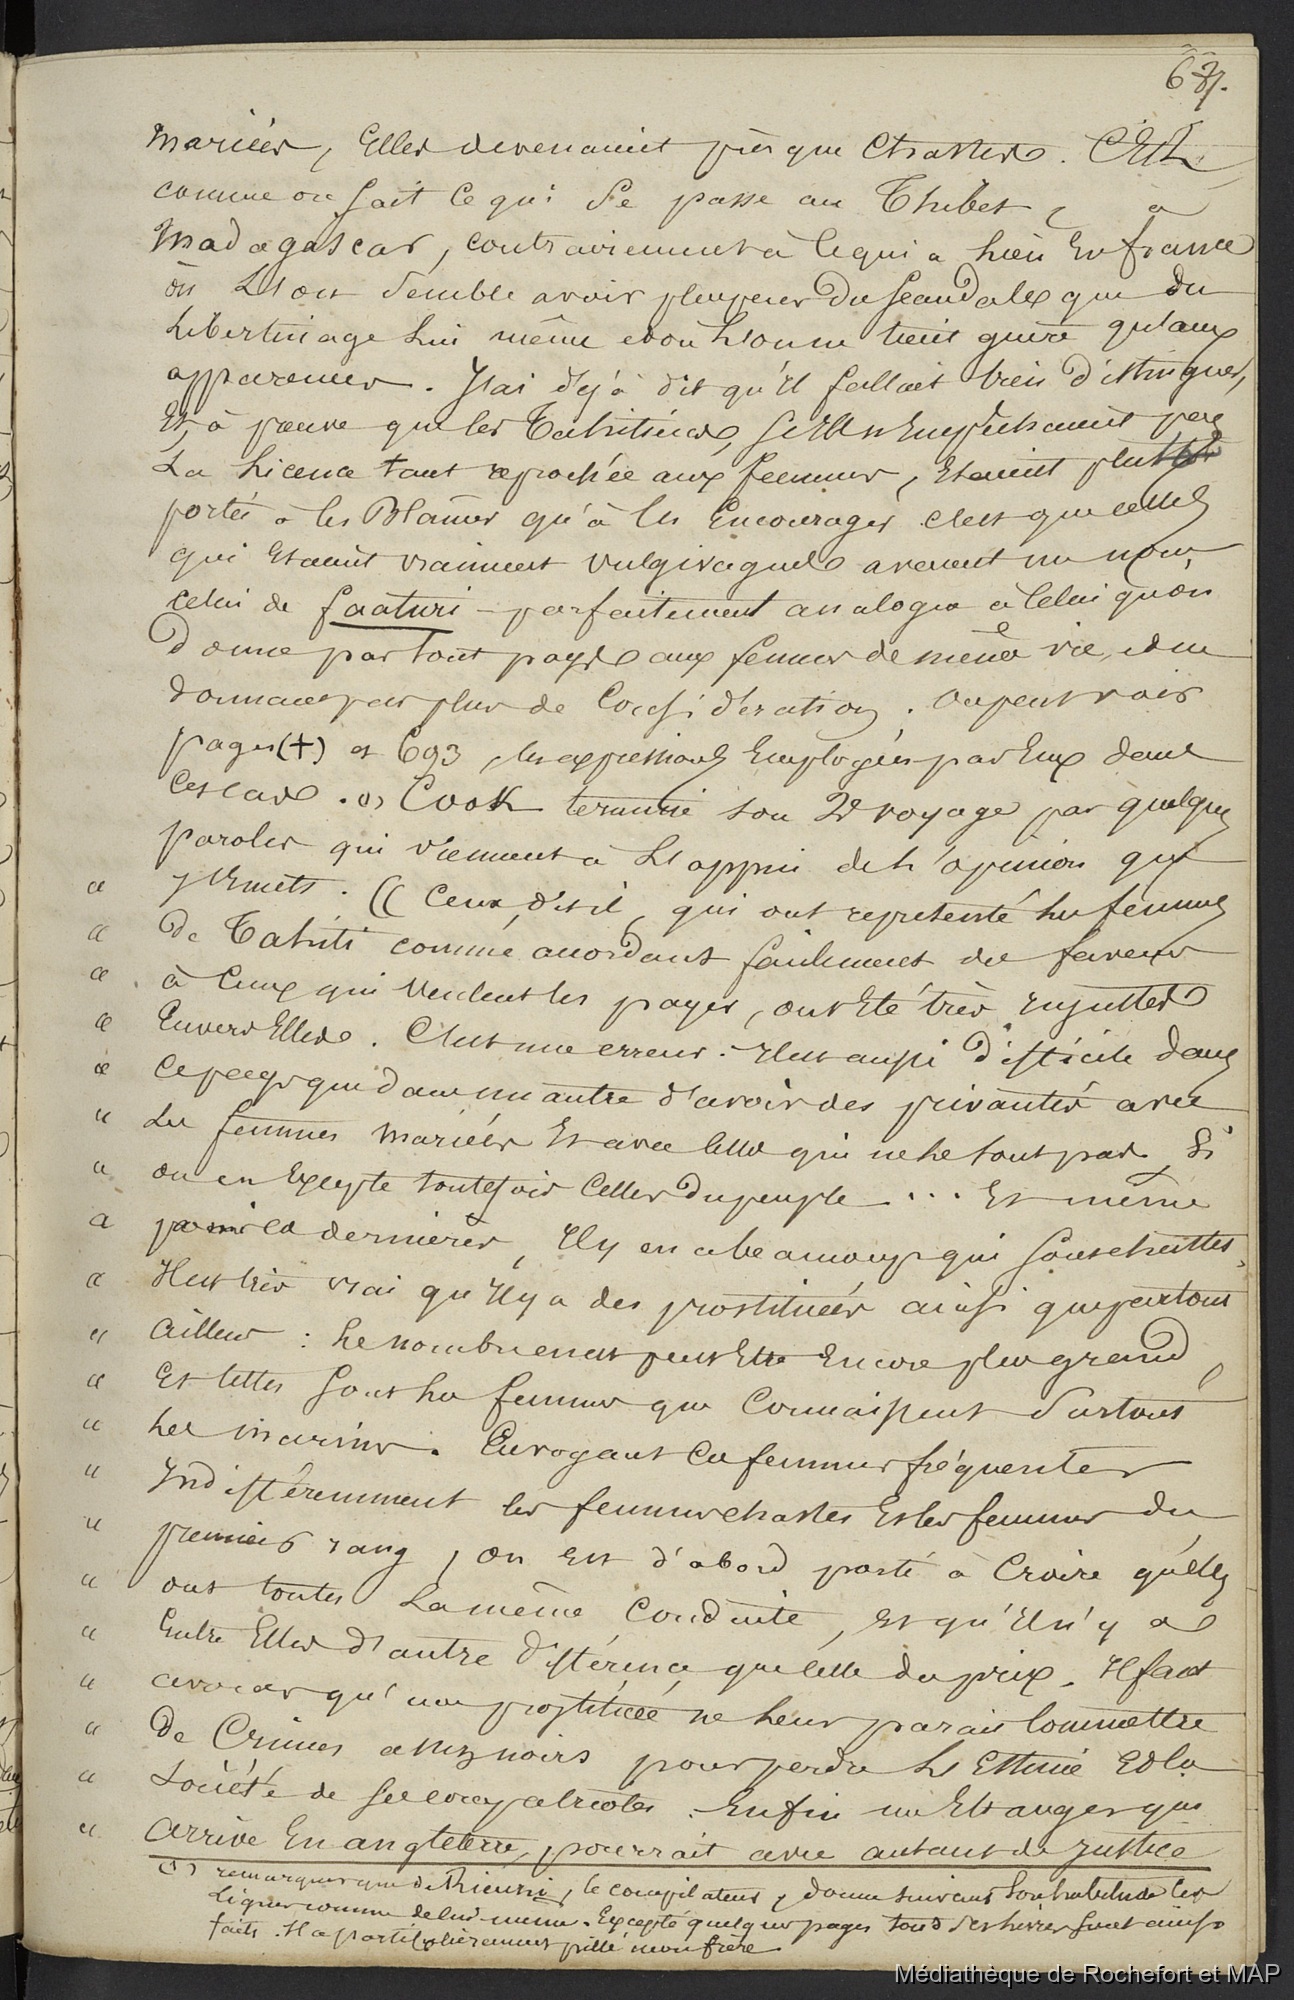 687.
mariées, Elles devenaient presque chastes. C'Est
comme on sait ce qui se passe au Thibet, a
Madagascar, contrairement à ce qui a lieu En france
où L'on semble avoir plus peur du scandale que du
Libertinage Lui même et où L'on ne tient guère qu'aux
apparences. J'ai déjà dit qu'Il fallait bien distinguer,
Et, à preuve que les Tahitiens, s'Ils n'Empêchaient pas
La Licence tant reprochée aux femmes, Etaient plutôt
portés à les Blamer qu'à les Encourager c'est que celles
qui Etaient vraiment vulgivagues avaient un nom,
celui de faaturi - parfaitement analogue à celui qu'on
donne partout pays aux femmes de même vie, et ne
donnant pas plus de Considération. on peut voir
pages (+) et 693, les expressions Employées par Eux dans
ces cas. (1) Cook termine son 2e voyage par quelques
paroles qui viennent à L'appui de L'opinion que
j'Emets. (( Ceux, dit-il, qui ont représenté les femmes
" de Tahiti comme accordant facilement des faveurs
" à Ceux qui veulent les payer, ont Eté très injustes
" Envers Elles. C'est une erreur. Il est aussi difficile dans
" ce pays que dans un autre d'avoir des privautés avec
" Les femmes mariées Et avec celles qui ne le sont pas, si
" on en Excepte toutefois celles du peuple ... Et même
" parmi ces dernières, Il y en a beaucoup qui sont chastes.
" Il est très vrai qu'Il y a des prostituées ainsi que partout
" ailleurs : Le nombre en est peut Etre Encore plus grand,
" Et telles sont les femmes que Connaissent surtout
" Les marins. En voyant ces femmes fréquenter
" Indifféremment les femmes chastes Et les femmes du
" premier rang, on est d'abord porté à Croire qu'elles
" ont toutes La même Conduite, et qu'Il n'y a
" Entre Elles d'autre différence que celle du prix. Il faut
" avouer qu'une prostituée ne Leur parait commettre
" de Crimes assez noirs pour perdre L'Estime Et la
" société de ses compatriotes. Enfin un Etranger qui
" arrive En angleterre, pourrait avec autant de justice
(1) remarquer que de Rienzi, le compilateur, donne suivant son habitude ces
lignes comme de lui même. Excepté quelques pages tous ses livres sont ainsi
faits. Il a particulièrement pillé mon frère.
Médiathèque de Rochefort et MAP